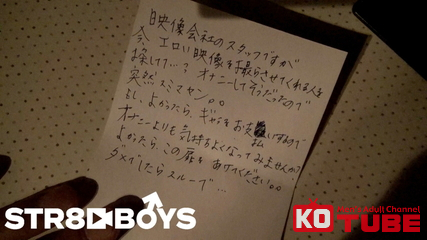 映像会社のスタッフですが
今 エロい映像を撮らせてくれる人を
探してて…? オナニーしてそうだったので
突然スミマセン。。
もし、よかったら、ギャラをお支払いするので
オナニーよりも気持ちよくなってみませんか?
よかったら、この扉をあけてください。。
ダメでしたらスルーで…
STR8BOYS
KO
TUBE
Men's Adult Channel